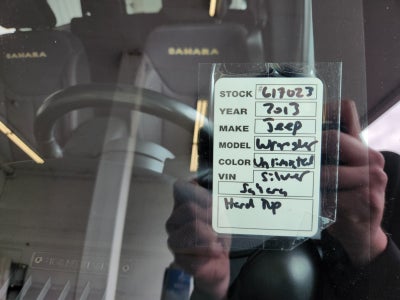 SAHARA
SAHARA
STOCK 617023
YEAR 2013
MAKE Jeep
MODEL Wrangler
COLOR Unlimited
VIN Silver
Sahara
Hard Top